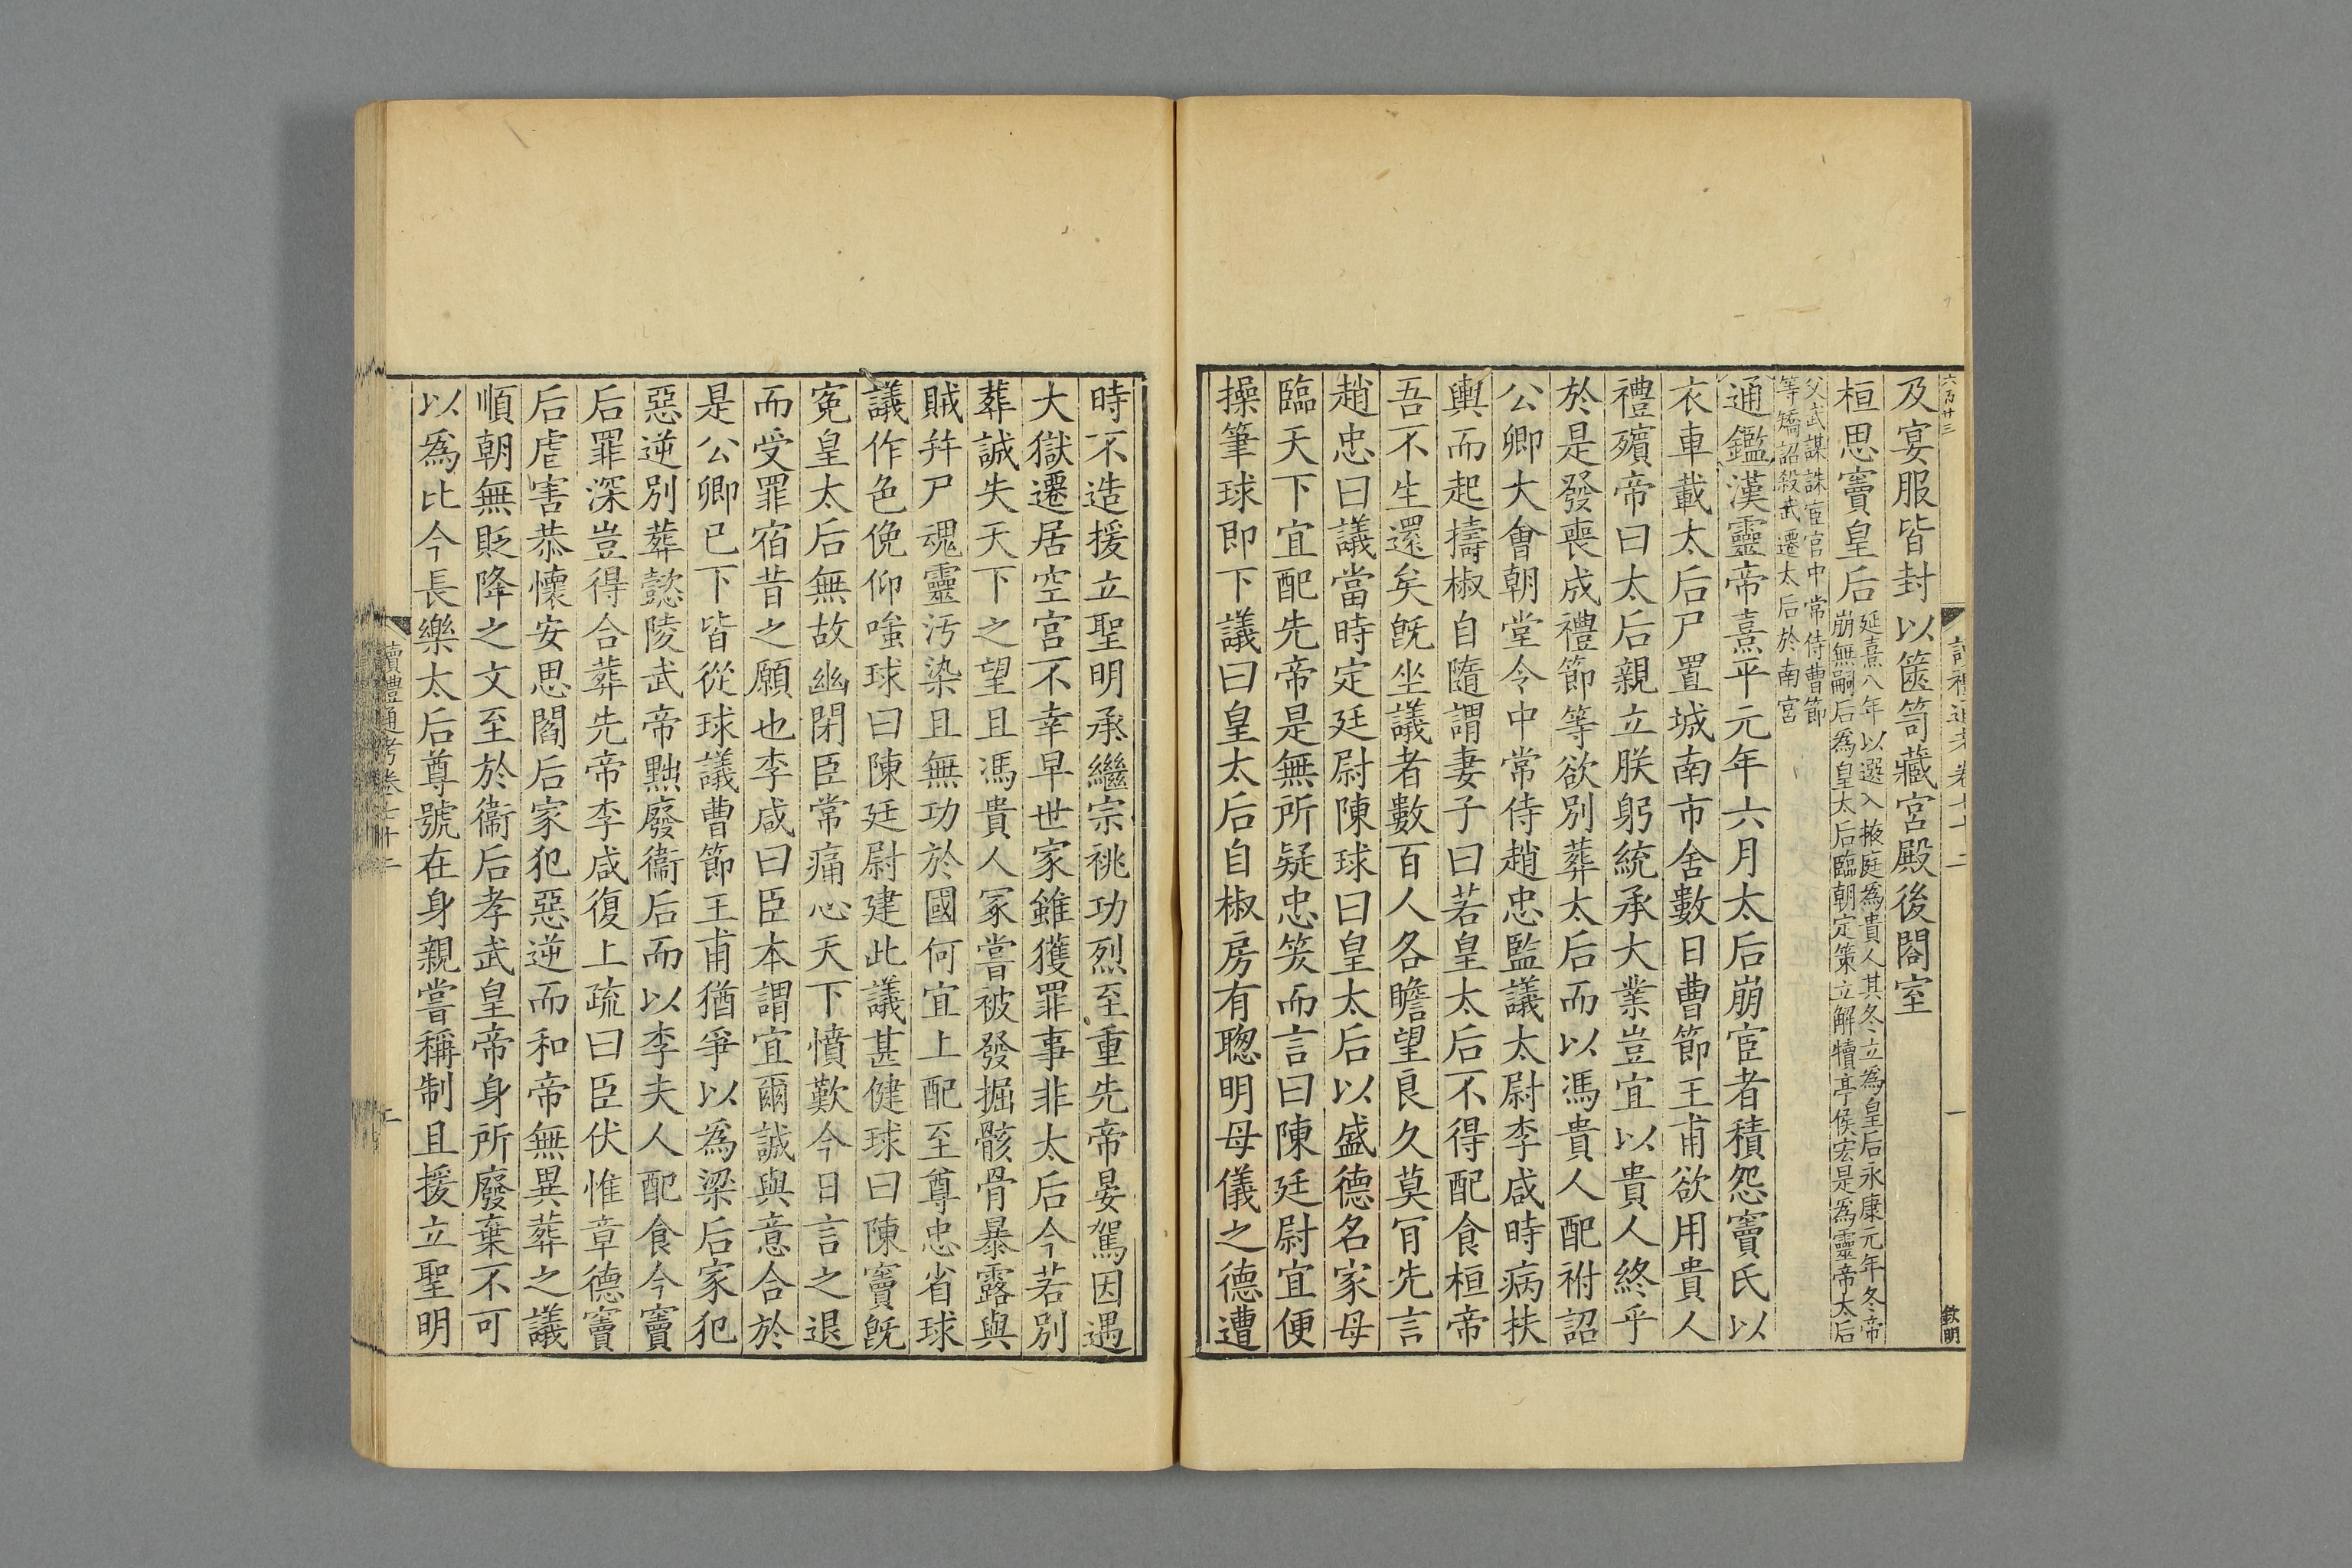 六百廿三
讀禮通考卷七十二
一
欽明
及宴服皆封以篋笥藏宮殿後閤室
桓思竇皇后
延熹八年以選入掖庭為貴人其冬立為皇后永康元年冬帝
崩無嗣后為皇太后臨朝定策立解犢亭侯宏是為靈帝太后
父武謀誅宦官中常侍曹節
等矯詔殺武遷太后於南宮
通鑑漢靈帝熹平元年六月太后崩宦者積怨竇氏以
衣車載太后尸置城南市舍數日曹節王甫欲用貴人
禮殯帝曰太后親立朕躬統承大業豈宜以貴人終乎
於是發喪成禮節等欲別葬太后而以馮貴人配祔詔
公卿大會朝堂令中常侍趙忠監議太尉李咸時病扶
輿而起擣椒自隨謂妻子曰若皇太后不得配食桓帝
吾不生還矣旣坐議者數百人各瞻望良久莫肎先言
趙忠曰議當時定廷尉陳球曰皇太后以盛德名家母
臨天下宜配先帝是無所疑忠笑而言曰陳廷尉宜便
操筆球即下議曰皇太后自椒房有聰明母儀之德遭
時不造援立聖明承繼宗祧功烈至重先帝晏駕因遇
大獄遷居空宮不幸早世家雖獲罪事非太后今若別
葬誠失天下之望且馮貴人冢嘗被發掘骸骨暴露與
賊幷尸魂靈汚染且無功於國何宜上配至尊忠省球
議作色俛仰嗤球曰陳廷尉建此議甚健球曰陳竇旣
寃皇太后無故幽閉臣常痛心天下憤歎今日言之退
而受罪宿昔之願也李咸曰臣本謂宜爾誠與意合於
是公卿已下皆從球議曹節王甫猶爭以為梁后家犯
惡逆別葬懿陵武帝黜廢衞后而以李夫人配食今竇
后罪深豈得合葬先帝李咸復上疏曰臣伏惟章德竇
后虐害恭懷安思閻后家犯惡逆而和帝無異葬之議
順朝無貶降之文至於衞后孝武皇帝身所廢棄不可
以爲比今長樂太后尊號在身親嘗稱制且援立聖明
讀禮通考卷七十二